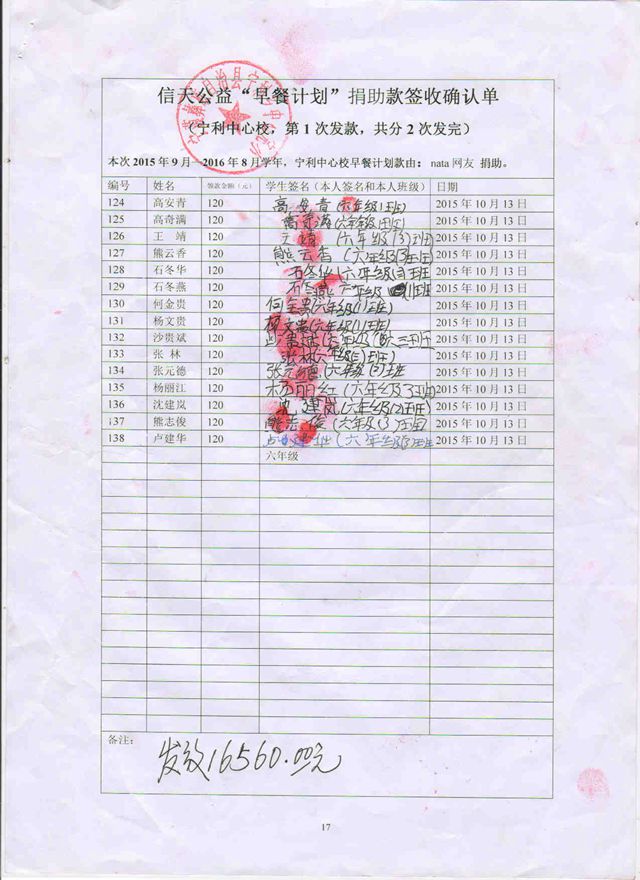 信天公益“早餐计划”捐助款签收确认单
（宁利中心校，第1次发款，共分2次发完）
本次2015年9月—2016年8月学年，宁利中心校早餐计划款由：nata网友 捐助。
编号 姓名 领款金额（元） 学生签名（本人签名和本人班级） 日期
124 高安青 120 高安青（六年级1班） 2015年10月13日
125 高奇满 120 高奇满（六年级1班） 2015年10月13日
126 王 靖 120 王靖（六年级（3）班 2015年10月13日
127 熊云香 120 熊云香（六年级（3）班） 2015年10月13日
128 石冬华 120 石冬华（六年级（3）班 2015年10月13日
129 石冬燕 120 石冬燕 六年级（1）班 2015年10月13日
130 何金贵 120 何金贵（六年级（1）班） 2015年10月13日
131 杨文贵 120 杨文贵（六年级（1）班） 2015年10月13日
132 沙贵斌 120 沙贵斌（六年级 2015年10月13日
133 张 林 120 张林（六年级 班） 2015年10月13日
134 张元德 120 张元德（六年级 班） 2015年10月13日
135 杨丽江 120 杨丽红（六年级3班 2015年10月13日
136 沈建岚 120 沈建岚（六年级（2）班 2015年10月13日
137 熊志俊 120 熊志俊（六年级（3）班 2015年10月13日
138 卢建华 120 卢建华（六年级3班 2015年10月13日
六年级
备注：
发放16560.00元
17